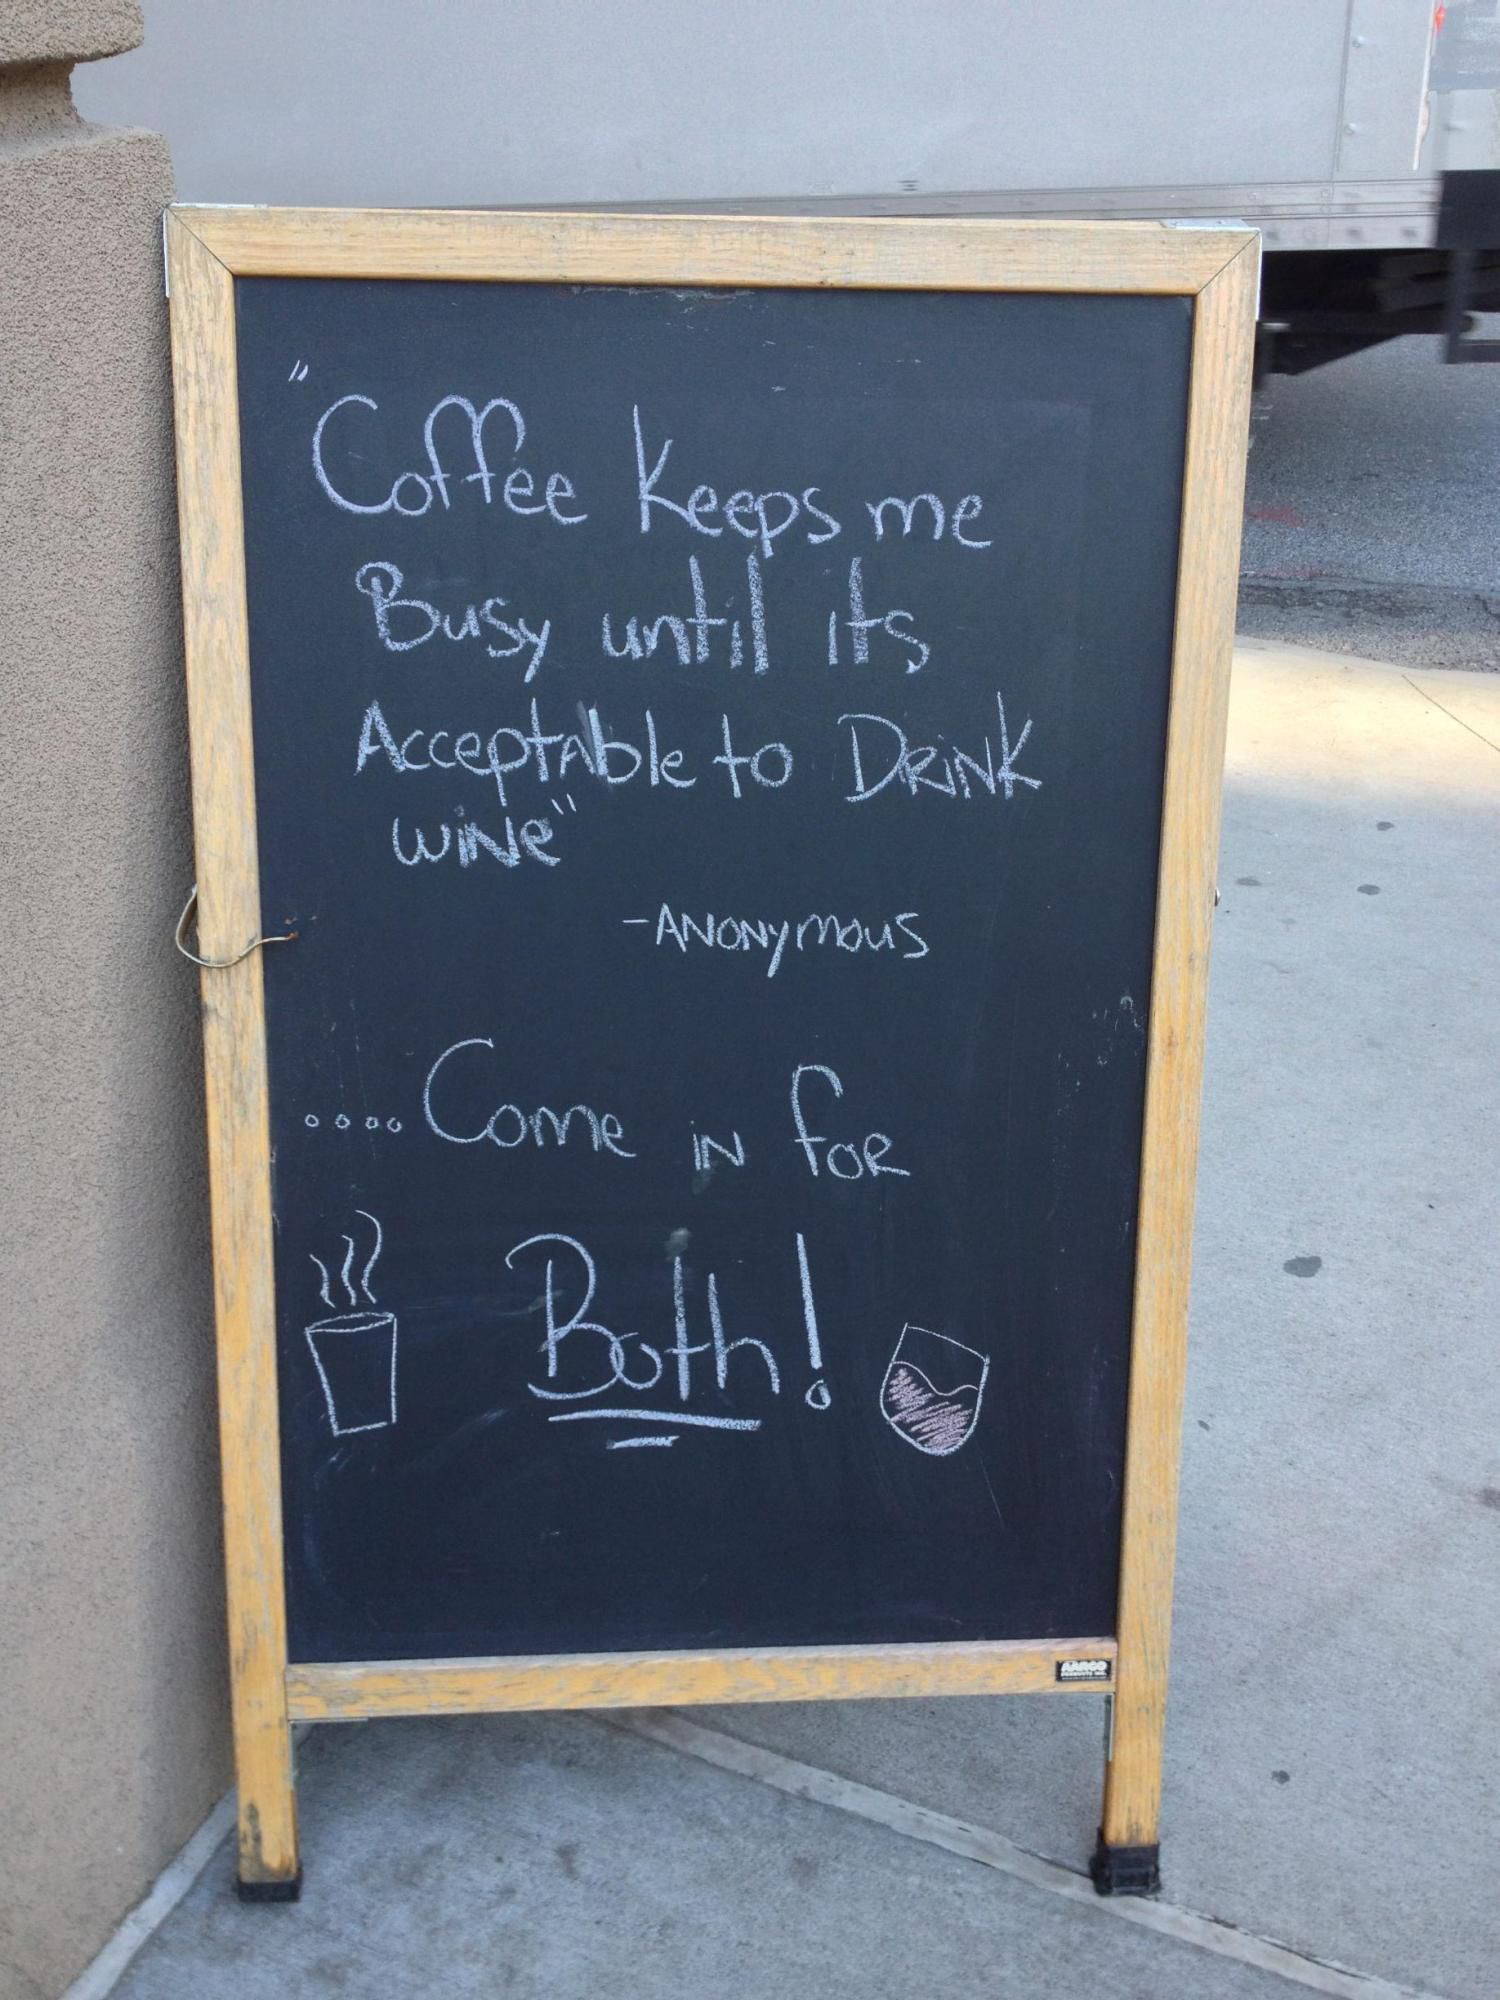 "Coffee Keeps me
Busy until its
Acceptable to Drink
wine"
-Anonymous
....Come in for
Both!
AARCO
PRODUCTS INC.